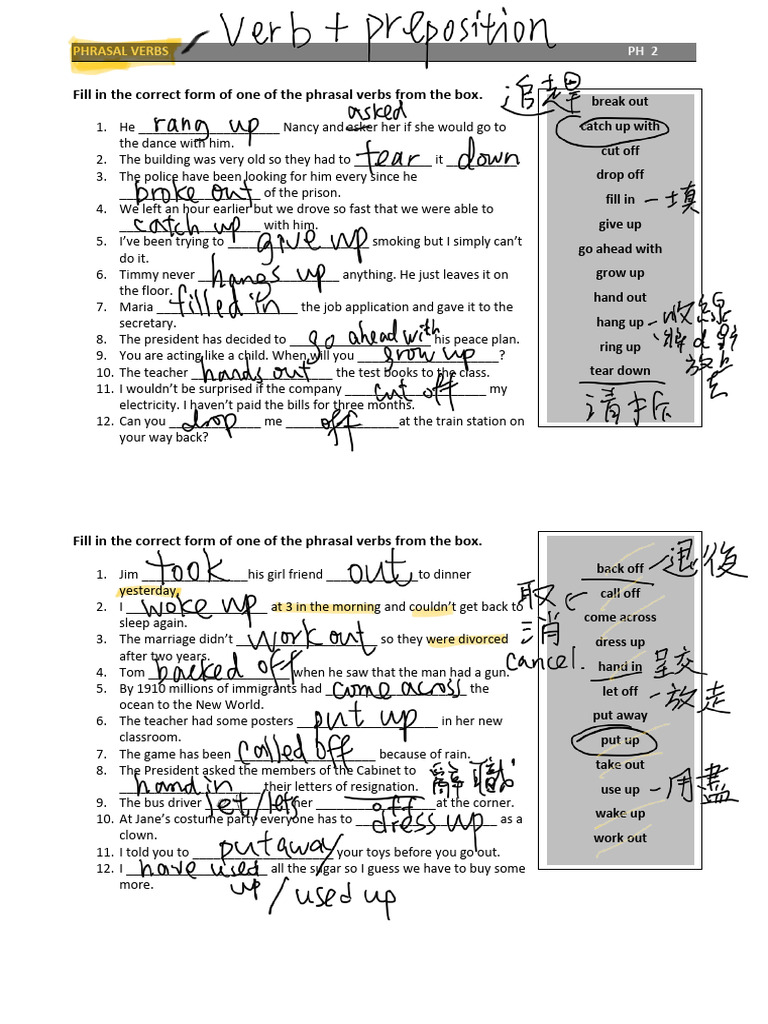 verb + preposition
PHRASAL VERBS PH 2
Fill in the correct form of one of the phrasal verbs from the box.
asked
1. He rang up Nancy and asker her if she would go to
the dance with him.
2. The building was very old so they had to tear it down
3. The police have been looking for him every since he
broke out of the prison.
4. We left an hour earlier but we drove so fast that we were able to
catch up with him.
5. I've been trying to give up smoking but I simply can't
do it.
6. Timmy never hangs up anything. He just leaves it on
the floor.
7. Maria filled in the job application and gave it to the
secretary.
8. The president has decided to go ahead with his peace plan.
9. You are acting like a child. When will you grow up ?
10. The teacher hands out the test books to the class.
11. I wouldn't be surprised if the company cut off my
electricity. I haven't paid the bills for three months.
12. Can you drop me off at the train station on
your way back?
追趕
break out
catch up with
cut off
drop off
fill in – 填
give up
go ahead with
grow up
hand out
hang up – 收線
ring up
tear down
Fill in the correct form of one of the phrasal verbs from the box.
1. Jim took his girl friend out to dinner
yesterday,
2. I woke up at 3 in the morning and couldn't get back to
sleep again.
3. The marriage didn't work out so they were divorced
after two years.
4. Tom backed off when he saw that the man had a gun.
5. By 1910 millions of immigrants had come across the
ocean to the New World.
6. The teacher had some posters put up in her new
classroom.
7. The game has been called off because of rain.
8. The President asked the members of the Cabinet to
hand in their letters of resignation. 辭職
9. The bus driver let/lets her off at the corner.
10. At Jane's costume party everyone has to dress up as a
clown.
11. I told you to put away your toys before you go out.
12. I have used up all the sugar so I guess we have to buy some
more.
/ used up
back off 退後
call off 取消 cancel.
come across
dress up
hand in 呈交
let off – 放走
put away
put up
take out
use up – 用盡
wake up
work out